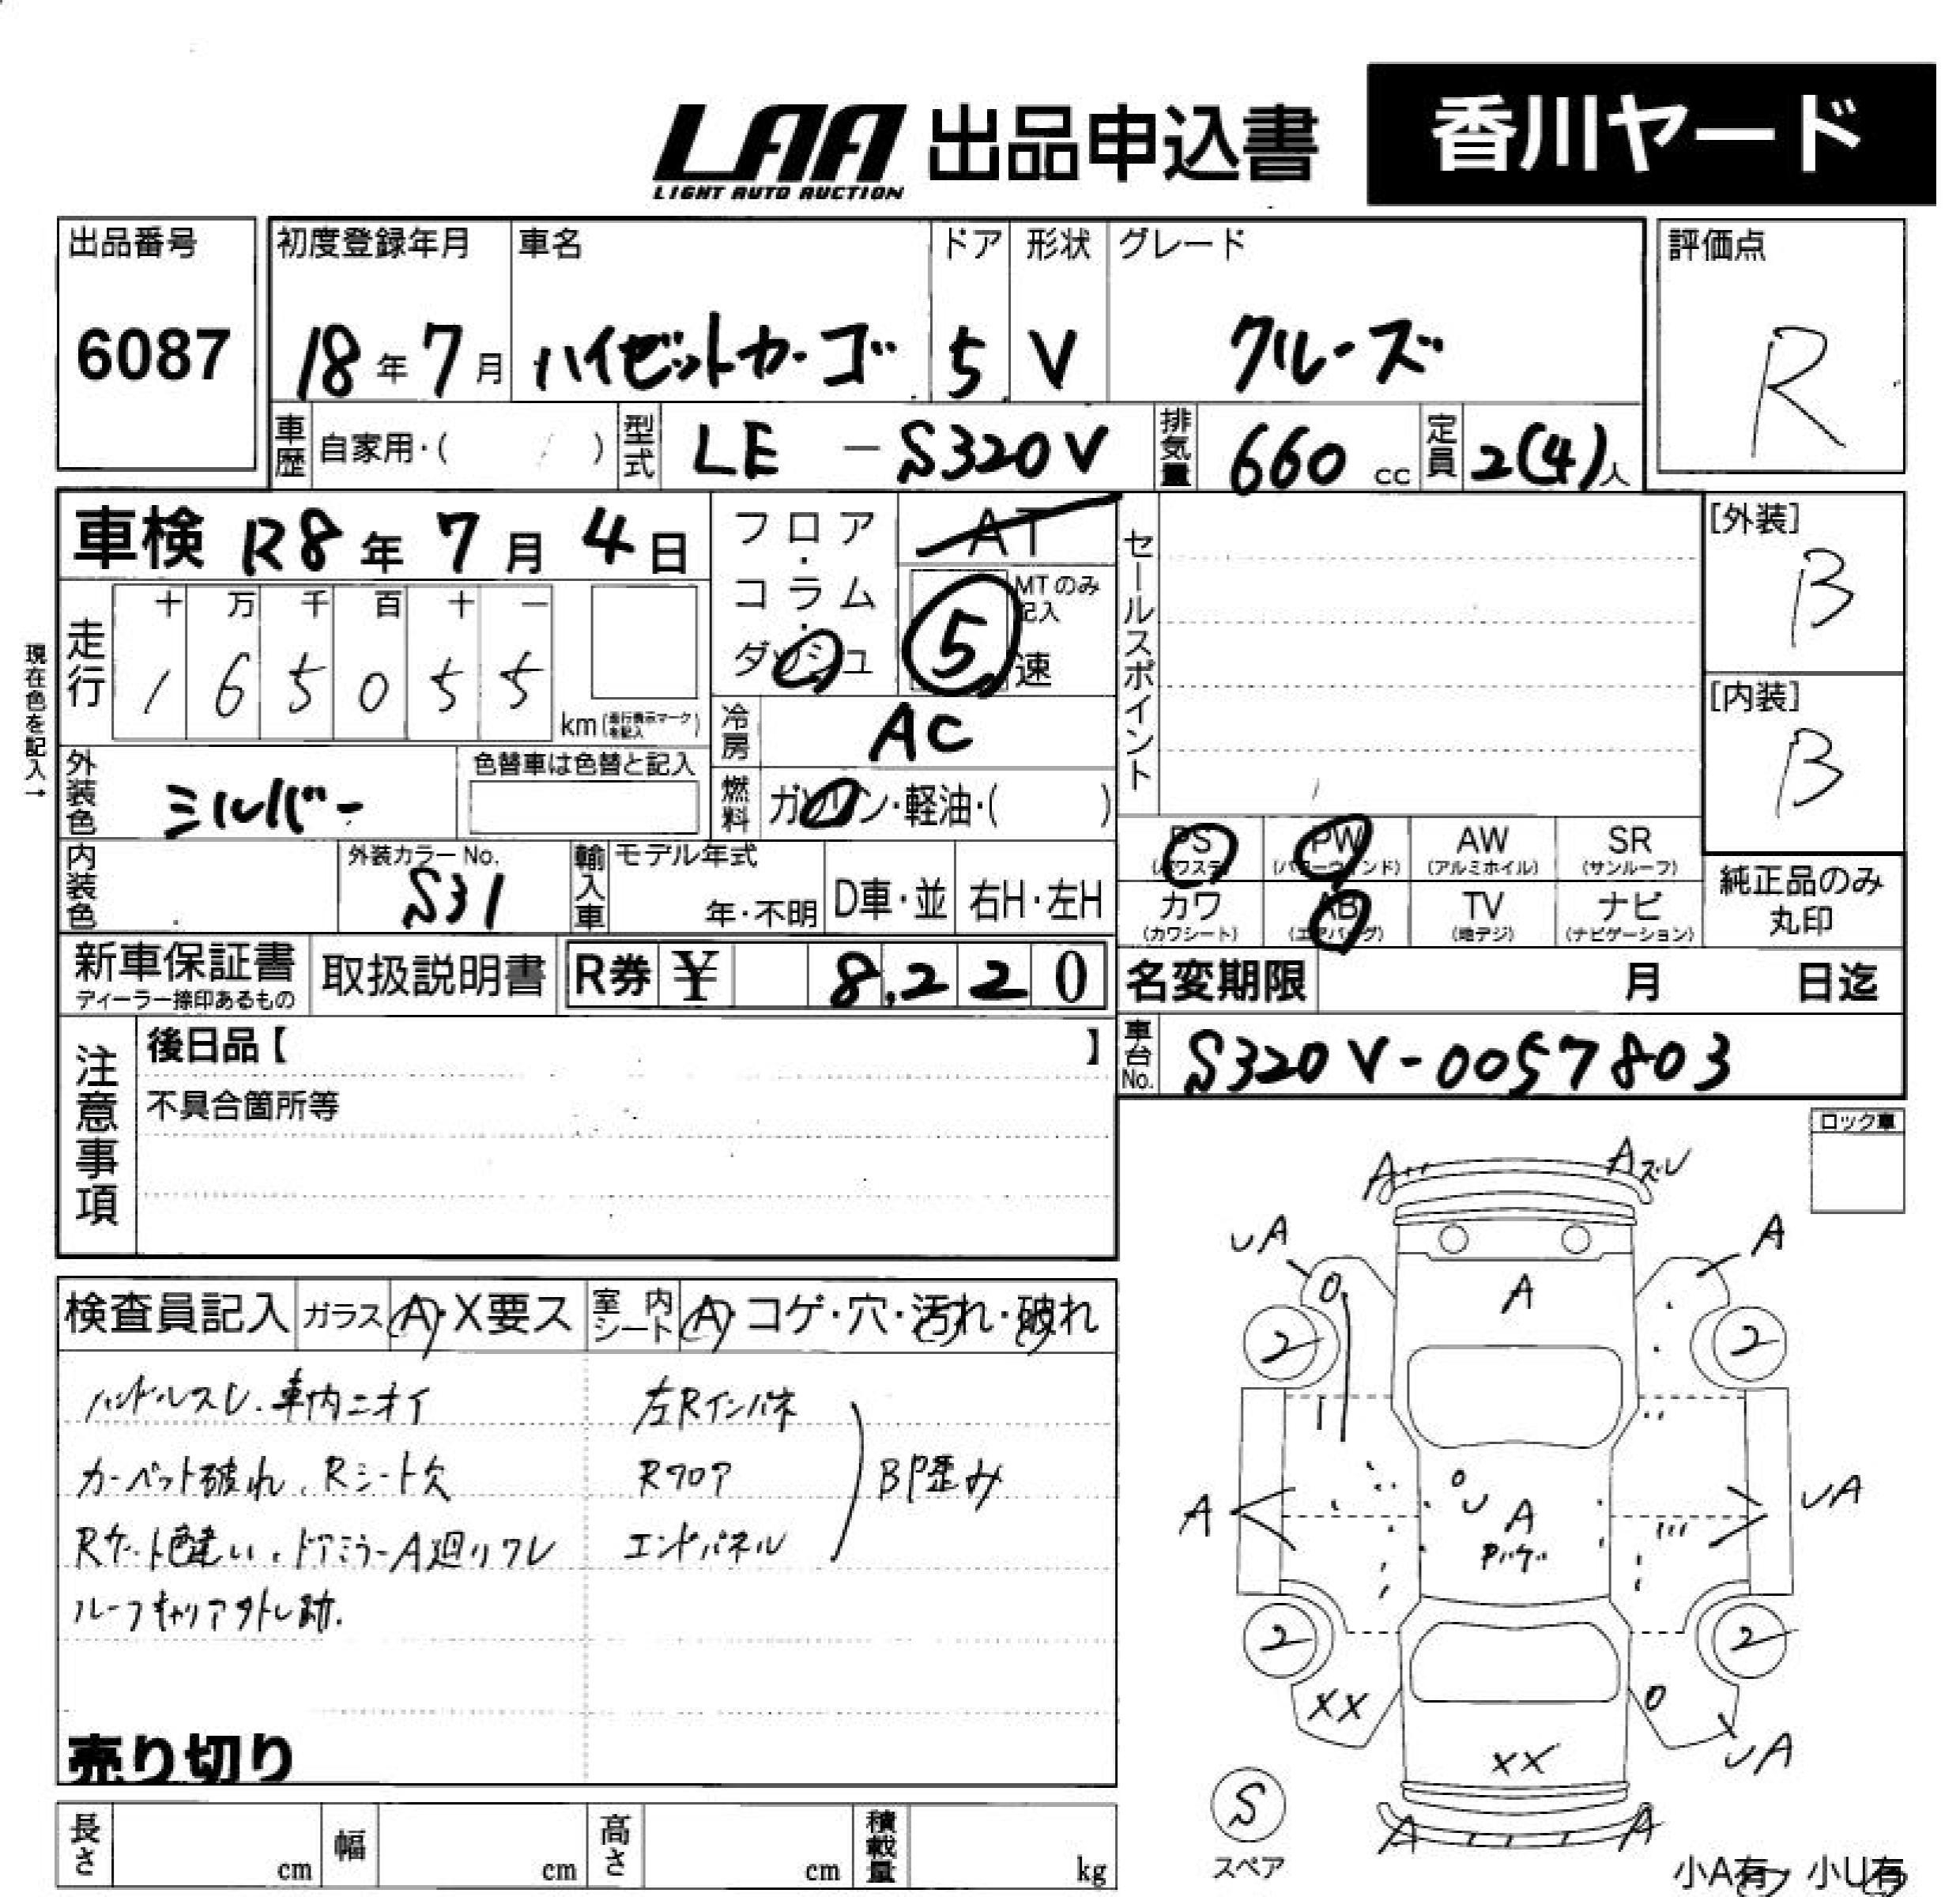 LAA 出品申込書 香川ヤード
LIGHT AUTO AUCTION
出品番号 初度登録年月 車名 ドア 形状 グレード 評価点
6087 18年7月 ハイゼットカーゴ 5 V クルーズ R
車歴 自家用・( ) 型式 LE - S320V 排気量 660 cc 定員 2(4)人
車検 R8年 7月 4日 フロア・コラム・ダッシュ AT セールスポイント [外装]
B
十 万 千 百 十 一 MTのみ記入
走行 1 6 5 0 5 5 km 5速
現在色を記入→
[内装]
B
冷房 AC
外装色 シルバー 色替車は色替と記入 燃料 ガソリン・軽油・( )
PS PW AW SR
(パワステ) (パワーウインド) (アルミホイル) (サンルーフ)
内装色 外装カラーNo. S31 輸入車 モデル年式 年・不明 D車・並 右H・左H
カワ AB TV ナビ 純正品のみ丸印
(カワシート) (エアバッグ) (地デジ) (ナビゲーション)
新車保証書 取扱説明書 R券 ¥ 8,220 名変期限 月 日迄
ディーラー捺印あるもの
車台No. S320V-0057803
注意事項 後日品【 】
不具合箇所等
ロック車
検査員記入 ガラス A・X要ス 室内シート A・コゲ・穴・汚れ・破れ
ハンドルスレ.車内ニオイ 左Rインパネ
カーペット破れ、Rシート欠 Rフロア BP歪み
Rゲート色違い、ドアミラーA廻りワレ エンドパネル
ルーフキャリア外し跡.
売り切り
A Aズレ
UA A
A
2 2
A UA
U A
Pハゲ
2 2
XX
XX UA
S
スペア
A A
長さ cm 幅 cm 高さ cm 積載量 kg
小A有 小U有